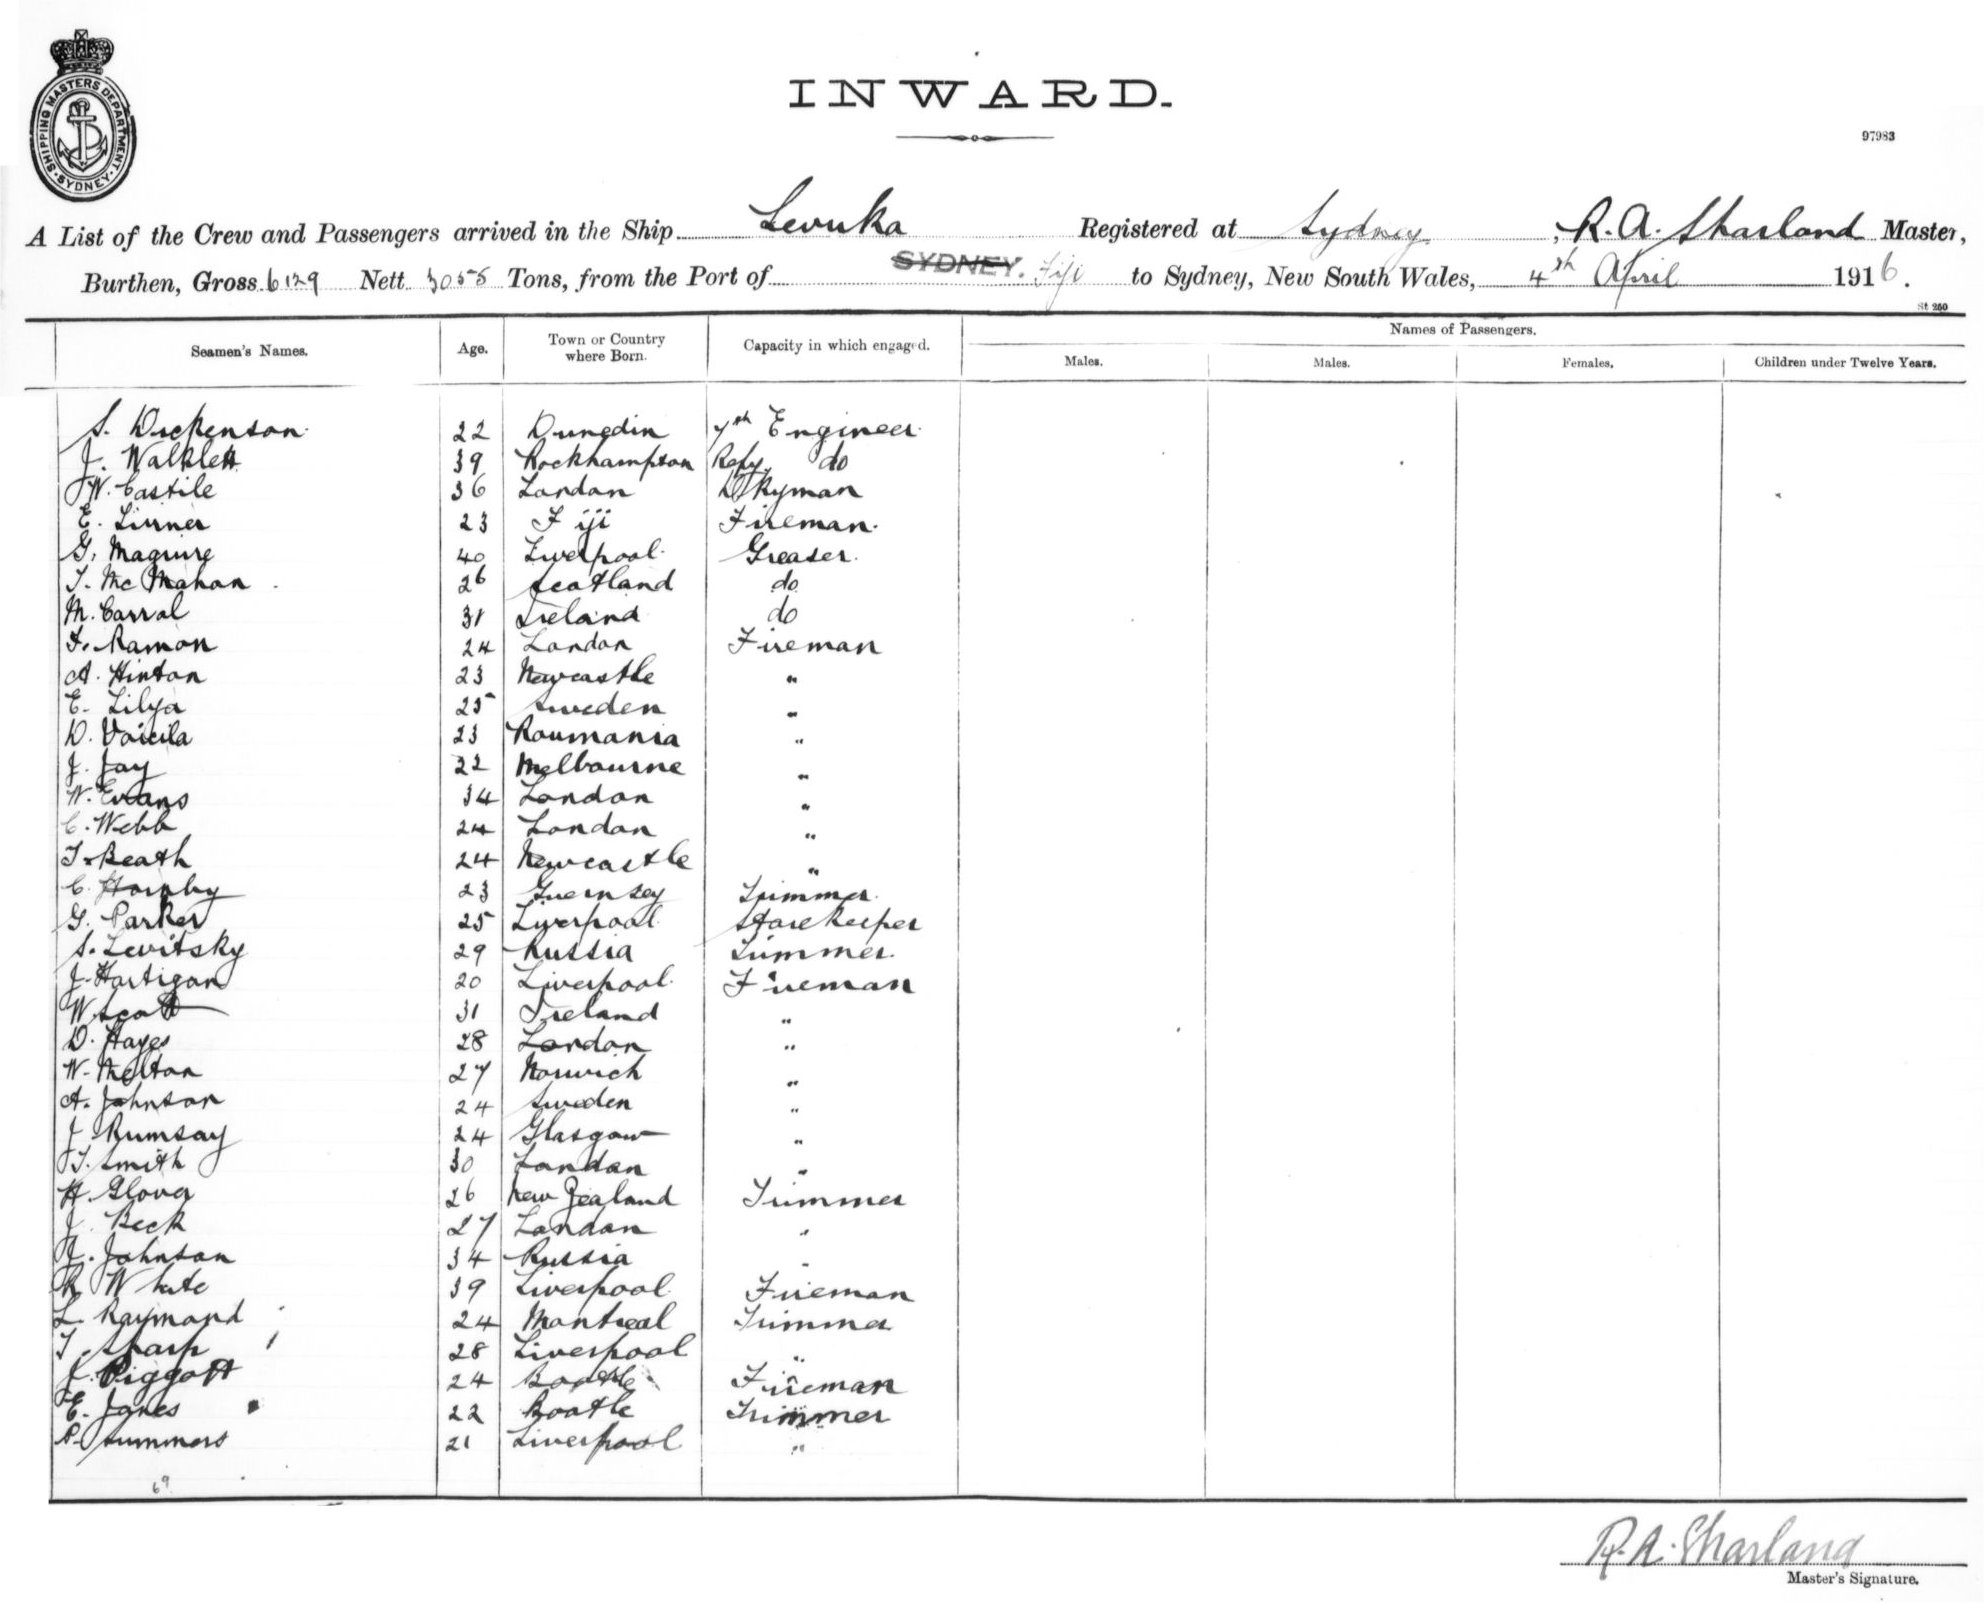 SHIPPING MASTERS DEPARTMENT. SYDNEY.
INWARD.
97983
A List of the Crew and Passengers arrived in the Ship Levuka Registered at Sydney, R. A. Sharland Master,
Burthen, Gross 6129 Nett 3055 Tons, from the Port of SYDNEY. Fiji to Sydney, New South Wales, 4th April 1916.
St 250
Seamen's Names. Age. Town or Country where Born. Capacity in which engaged. Names of Passengers.
Males. Males. Females. Children under Twelve Years.
S. Dickenson 22 Dunedin 7th Engineer
J. Walklett 39 Rockhampton Refg. do
W. Castile 36 London Dkyman
E. Turner 23 Fiji Fireman.
G. Maguire 40 Liverpool Greaser.
T. McMahon 26 Scotland do
M. Carrol 31 Ireland do
F. Ramon 24 London Fireman
A. Hinton 23 Newcastle "
E. Lilya 25 Sweden "
D. Voicila 23 Roumania "
J. Jay 22 Melbourne "
W. Evans 34 London "
C. Webb 24 London "
T. Beath 24 Newcastle "
C. Hornby 23 Guernsey Trimmer.
G. Parker 25 Liverpool Storekeeper
S. Levitsky 29 Russia Trimmer.
J. Hartigan 20 Liverpool Fireman
W. Scott 31 Ireland "
D. Hayes 28 London "
W. Melton 27 Norwich "
A. Johnson 24 Sweden "
J. Rumsay 24 Glasgow "
T. Smith 30 London "
H. Glover 26 New Zealand Trimmer
J. Beck 27 London "
J. Johnson 34 Russia "
R. White 39 Liverpool Fireman
L. Raymond 24 Montreal Trimmer
T. Sharp 28 Liverpool "
J. Piggott 24 Bootle Fireman
E. Jones 22 Bootle Trimmer
P. Summers 21 Liverpool "
69
R. A. Sharland
Master's Signature.